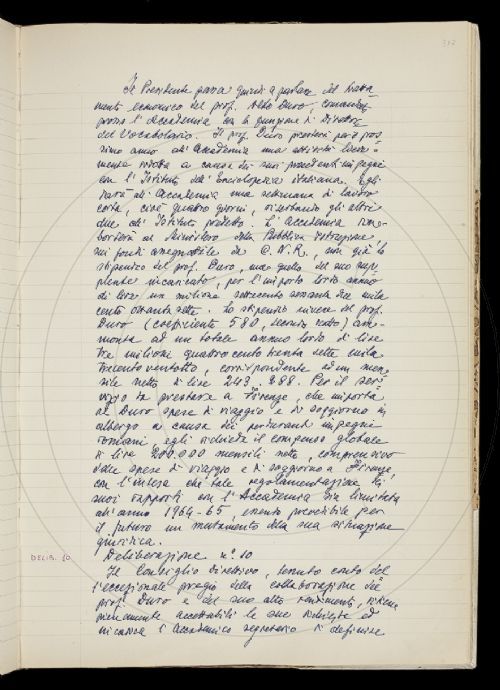 Il Presidente passa quindi a parlare del tratta-
mento economico del prof. Aldo Duro, comandato
presso l'Accademia con la funzione di Direttore
del Vocabolario. Il prof. Duro presterà per il pros-
simo anno all'Accademia una attività lieve-
mente ridotta a causa dei suoi precedenti impegni
con l'Istituto dell'Enciclopedia italiana. Egli
darà all'Accademia una settimana di lavoro
corta, cioè quattro giorni, riserbando gli altri
due all'Istituto predetto. L'Accademia rim-
borserà al Ministero della Pubblica Istruzione,
sui fondi assegnatile da C.N.R., non già lo
stipendio del prof. Duro, ma quello del suo sup-
plente incaricato, per l'importo lordo annuo
di lire un milione settecento sessanta due mila
cento ottanta sette. Lo stipendio invece del prof.
Duro (coefficiente 580, secondo scatto) am-
monta ad un totale annuo lordo di lire
tre milioni quattrocento trenta sette mila
trecento ventotto, corrispondente ad un men-
sile netto di lire 243.288. Per il ser-
vizio da prestare a Firenze, che importa
al Duro spese di viaggio e di soggiorno in
albergo a causa dei perduranti impegni
romani, egli richiede il compenso globale
di lire 200.000 mensili nette, comprensivo
delle spese di viaggio e di soggiorno a Firenze,
con l'intesa che tale regolamentazione dei
suoi rapporti con l'Accademia sia limitata
all'anno 1964-65, essendo prevedibile per
il futuro un mutamento della sua situazione
giuridica.
DELIB. 10 Deliberazione n.° 10
Il Consiglio Direttivo, tenuto conto del
l'eccezionale pregio della collaborazione del
prof. Duro e del suo alto rendimento, ritiene
pienamente accettabili le sue richieste ed
incarica l'Accademico segretario di definire